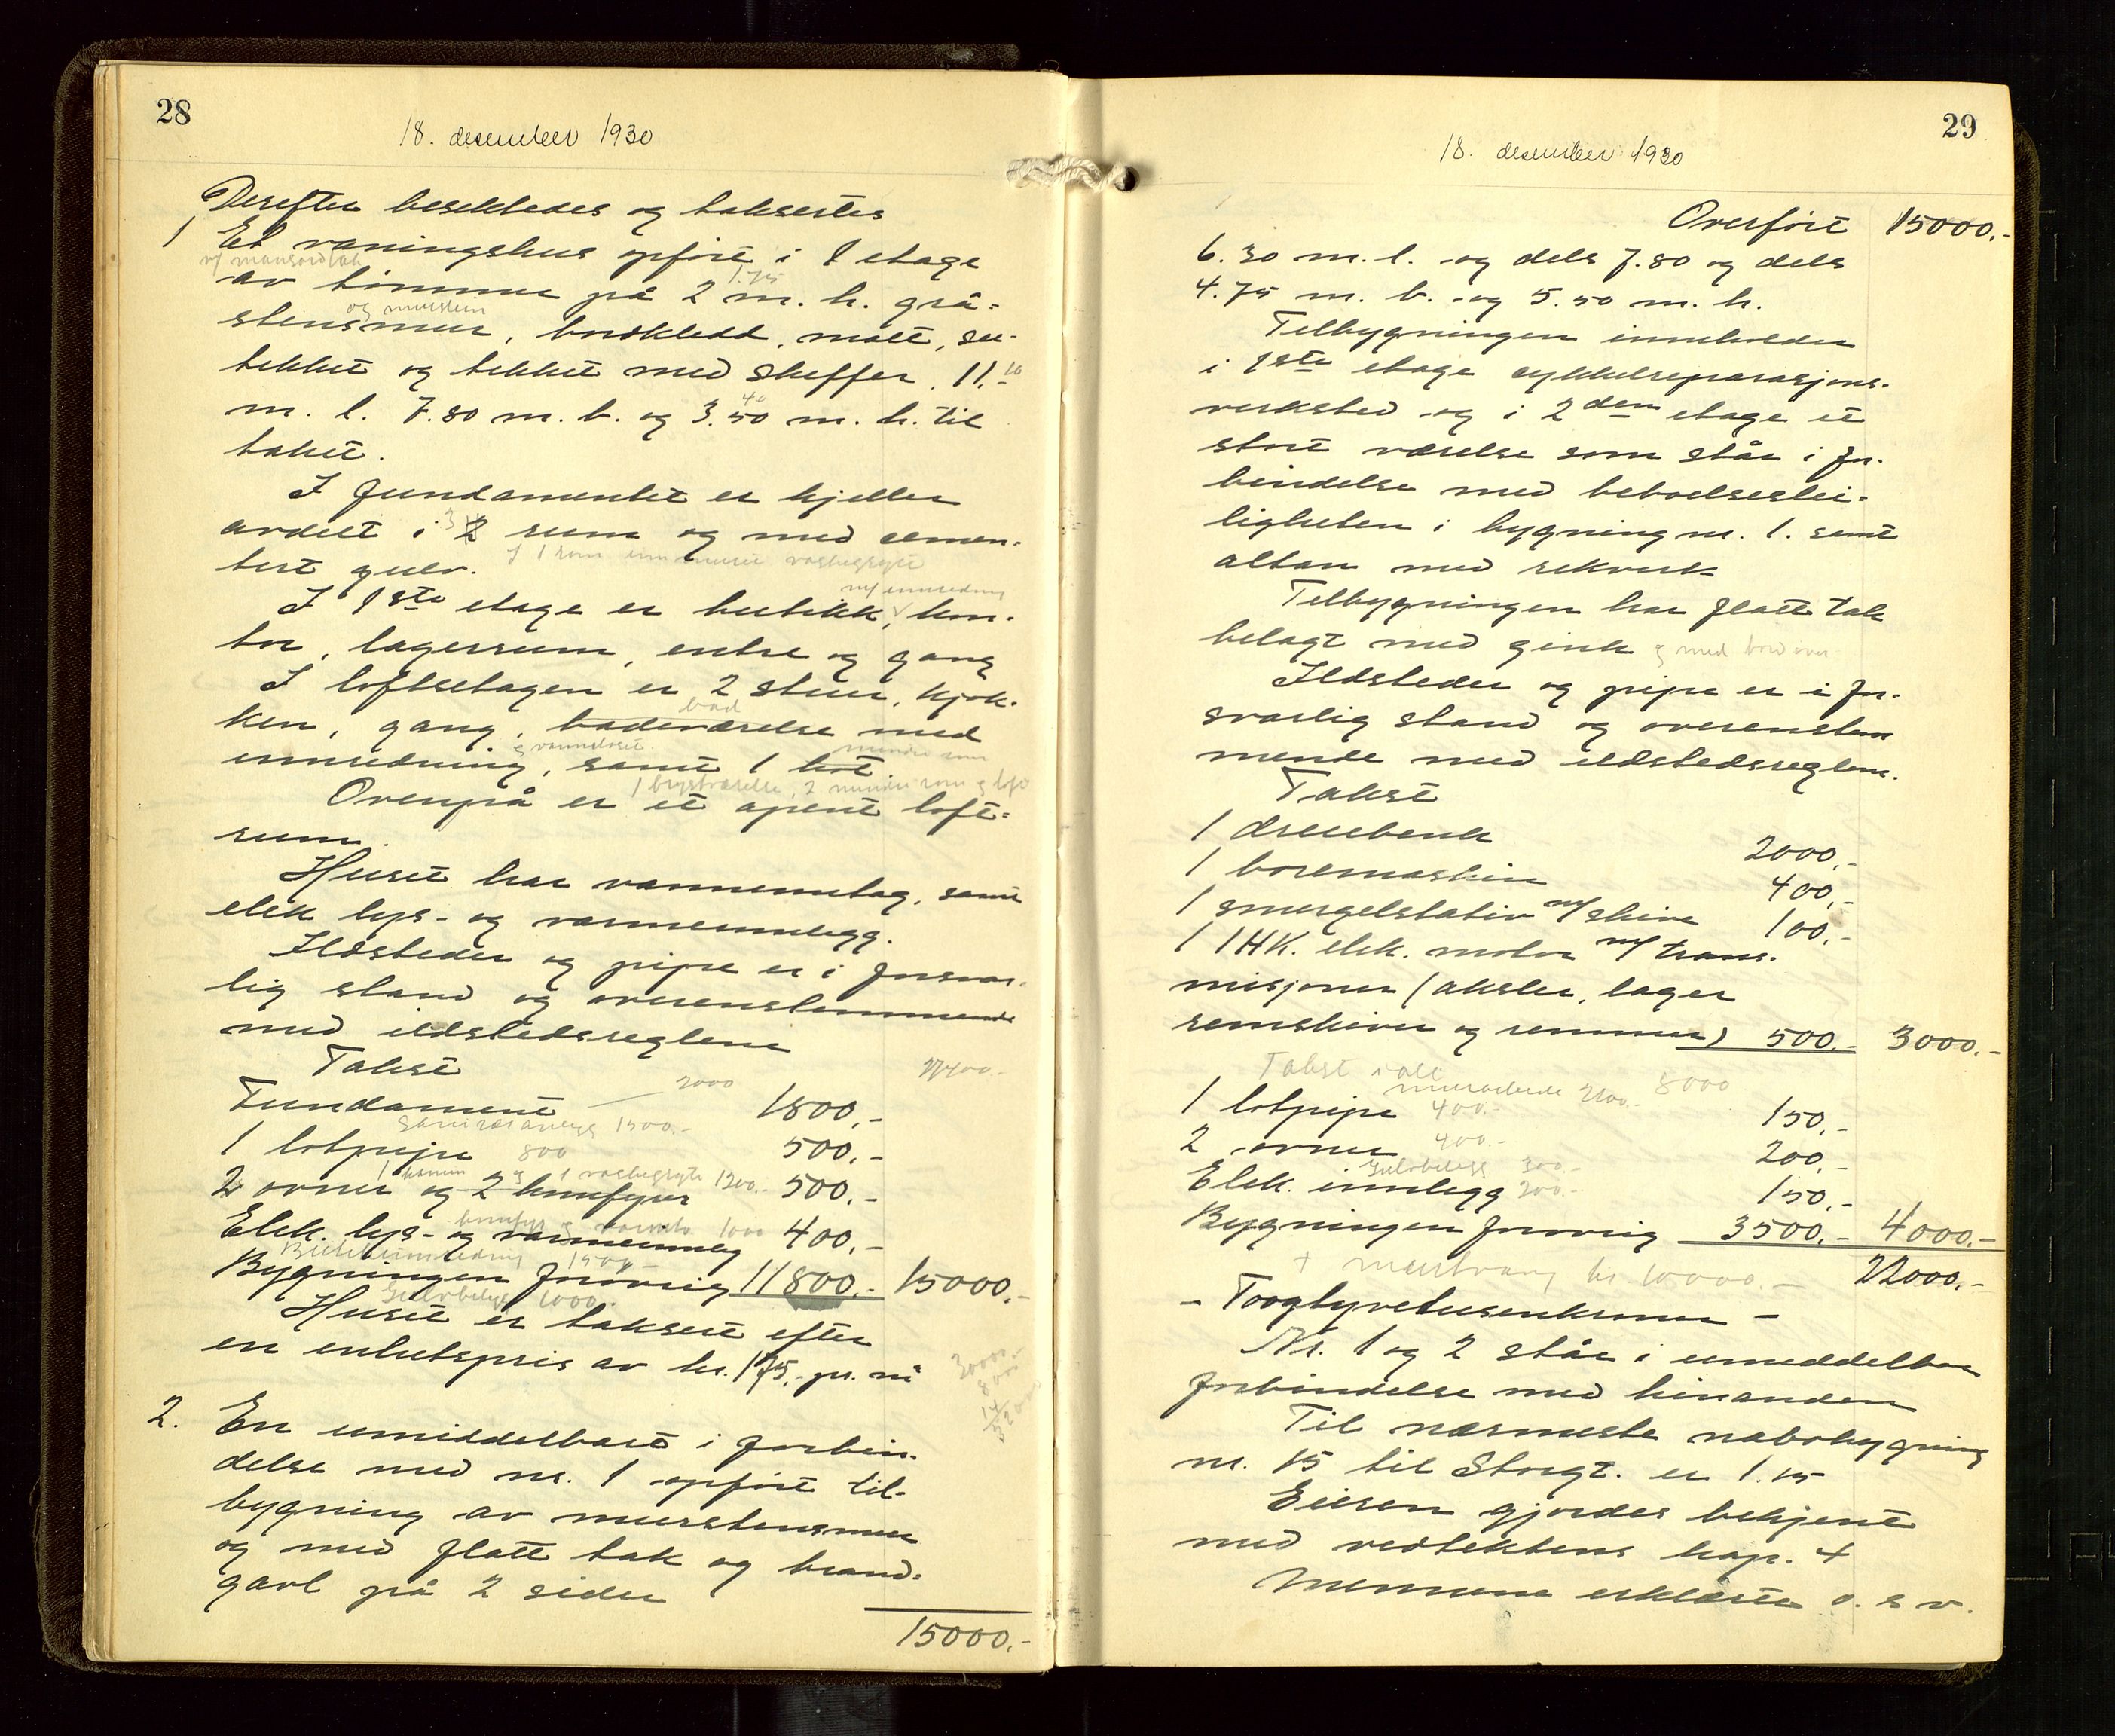 28
18. desember 1930
Derefter besiktedes og taksertes
1 Et våningshus opført i 1 etage
m/ mansardtak
av tømmer på 2 m. h. grå-
1.75
og murstein
stensmur, bordkledd, malt, su-
tekket og tekket med skiffer, 11.10
m. l. 7.80 m. b. og 3.50 m. h. til
40
taket.
I fundamentet er kjeller
avdelt i 2 rum og med semen-
3
tert gulv. I 1 rom innmuret vaskegryte
m/ innredning
I 1ste etage er butikk, kon-
tor, lagerrum, entre og gang
I loftsetagen er 2 stuer, kjøk-
bad
ken, gang, badeværelse med
og vannkloset
mindre rom
innredning, samt 1 kot.
1 kvistværelse, 2 mindre rom og loft
Ovenpå er et åpent loft-
rum.
Huset har vanninntag, samt
elek lys- og varmeinnlegg.
Ildsteder og pipe er i forsvar-
lig stand og overensstemmende
med ildstedsreglene
Takst
Fundament 2000 1800.-
Sanitæranlegg 1500.-
1 lotpipe 800 500.-
1 kamin og 1 vaskegryte 1200.-
2 ovner og 2 komfyrer 500.-
komfyr 1000
Elek. lys- og varmeinnleg 400.-
Butikkinnredning 1500.-
Bygningen forøvrig 11800.- 15000.-
Gulvbelegg 1000.-
Huset er taksert efter
en enhetspris av kr. 175.- pr. m²
2. En umiddelbart i forbin-
delse med nr. 1 opført til-
bygning av murstensmur
og med flatt tak og brand-
gavl på 2 sider
15000.-
29
18. desember 1930
Overført 15000.-
6.30 m. l. og dels 7.80 og dels
4.75 m. b. og 5.50 m. h.
Tilbygningen inneholder
i 1ste etage sykkelreparasjons-
verksted og i 2den etage et
stort værelse som står i for-
bindelse med beboelseslei-
ligheten i bygning nr. 1. samt
altan med rekverk
Tilbygningen har flatt tak
belagt med zink og med bord over
Ildsteder og pipe er i for-
svarlig stand og overenstem
mende med ildstedsreglene.
Takst
1 dreiebenk 2000.-
1 boremaskin 400.-
1 smergelstativ m/ skive 100.-
1 1HK. elek. motor m/ trans-
misjoner (aksler, lager
remskiver og remmer) 500.- 3000.-
Takst i alt 8000
murarbeide 2100.-
1 lotpipe 400.- 150.-
2 ovner 400.- 200.-
Gulvbelegg 300.-
Elek. innlegg 200.- 150.-
Bygningen forøvrig 3500.- 4000.-
+ kr 10000.- 22000.-
- Toogtyvetusenkroner -
Nr. 1 og 2 står i umiddelbar
forbindelse med hinanden
Til nærmeste nabobygning
nr. 15 til Storgt. er 1.15
Eieren gjordes bekjent
med vedtektens kap. 4
Mennene erklærte o. s v.